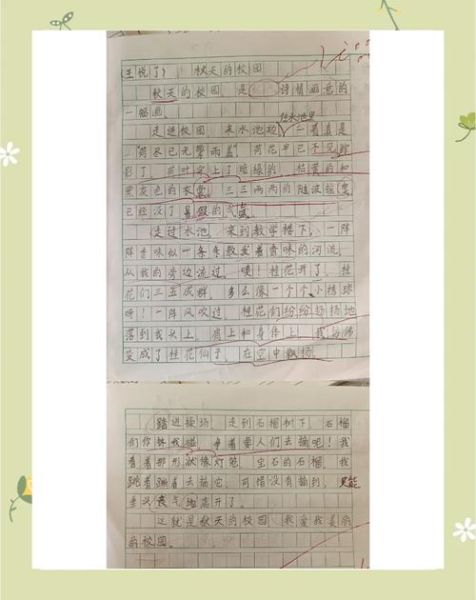 (王悦了) 秋天的校园
秋天的校园,是诗情画意的
一幅画。
走进校园,来水池边,往水池里一看真是
"荷尽已无擎雨盖"荷花早已不见踪
影了,荷叶穿上了暗绿的、枯黄的和
灰色的衣裳,三三两两的随波摇
已经没了暑假的气
走过水池,来到教学楼下,一阵
阵香味似一条条散发着香味的河流,
从我的旁边流过,噢!桂花开了,桂
花们三五成群,多么像一个个小绣球
呀!一阵风吹过,桂花们纷纷扬扬地
落到我头上、肩上和身体上,我
变成了桂花仙子,在空中飘扬。
踏进操场,走到石榴树下,石榴
们你挤我碰,争着要人们去摘吧!我
看着那形状像灯笼,宝石的石榴,我
跳着蹦着去摘它,可惜没有摘到,只能
垂头丧气地离开了。
这就是秋天的校园,我爱我美丽
的校园。